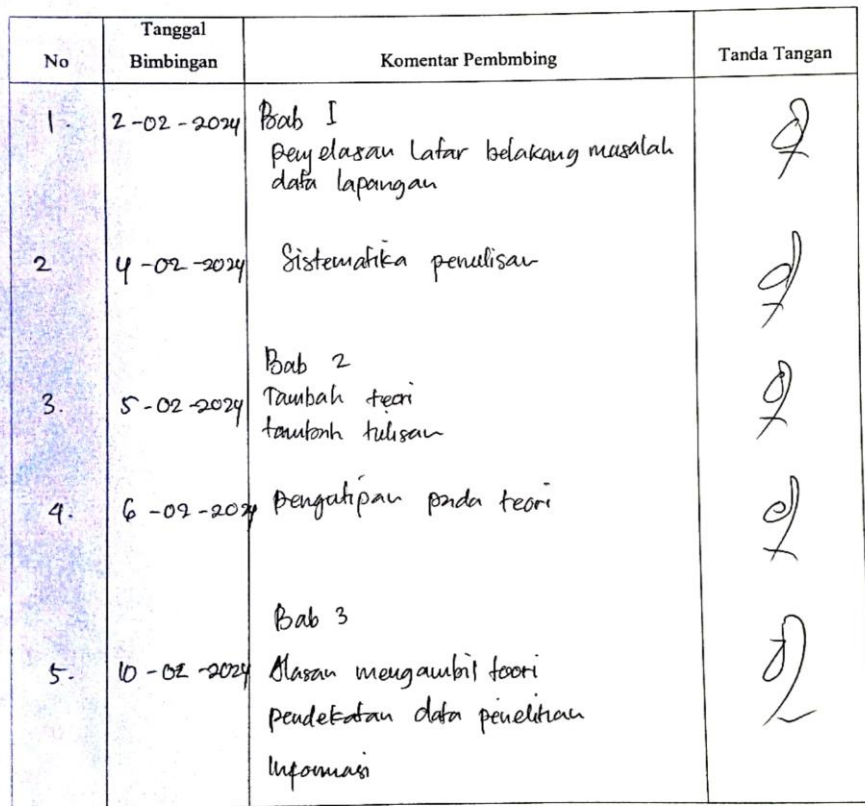 No Tanggal Bimbingan Komentar Pembmbing Tanda Tangan
1. 2-02-2024 Bab I
penjelasan Latar belakang masalah
data lapangan
2 4-02-2024 Sistematika penulisan
Bab 2
3. 5-02-2024 Tambah teori
tambah tulisan
4. 6-02-2024 pengutipan pada teori
Bab 3
5. 10-02-2024 Alasan mengambil teori
pendekatan data penelitian
Informasi